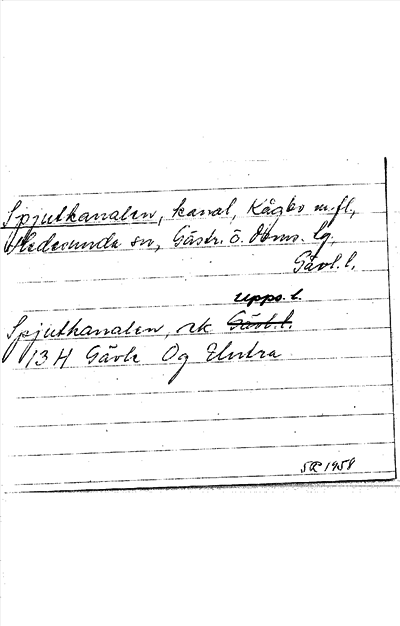 Spjutkanalen, kanal, Kågbo m.fl.,
Hedesunda sn, Gästr. ö. doms. lg,
Gävl. l.
Upps. l.
Spjutkanalen, rk Gävl. l.
13 H Gävle Og Elvkra
SOÄ 1958